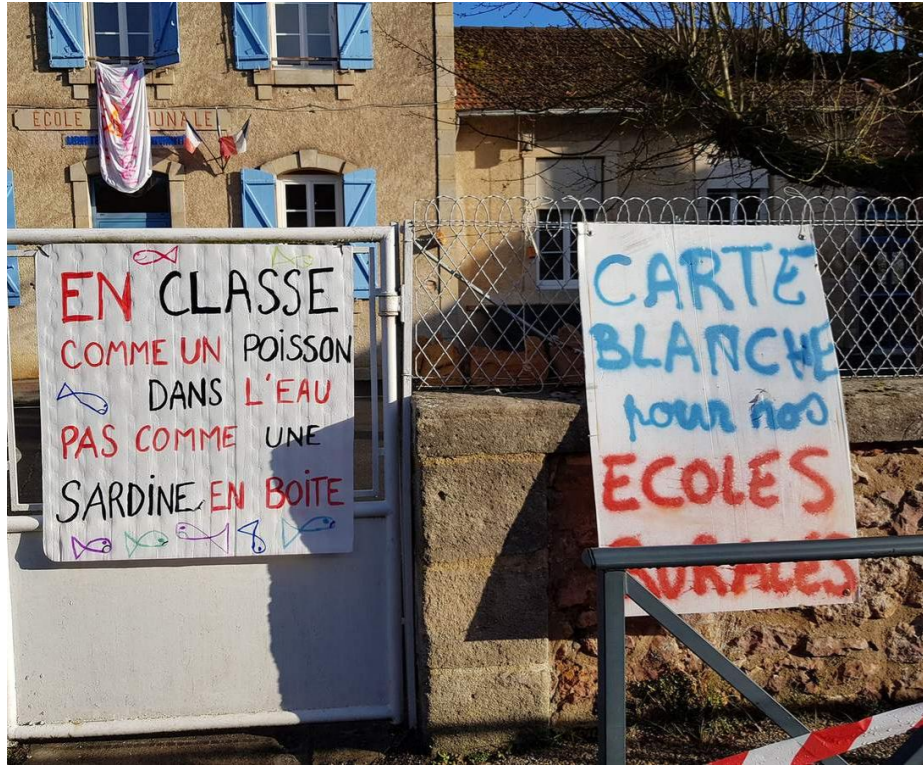 ECOLE
EN CLASSE
COMME UN POISSON
DANS L'EAU
PAS COMME UNE
SARDINE EN BOITE
CARTE
BLANCHE
pour nos
ECOLES
RURALES